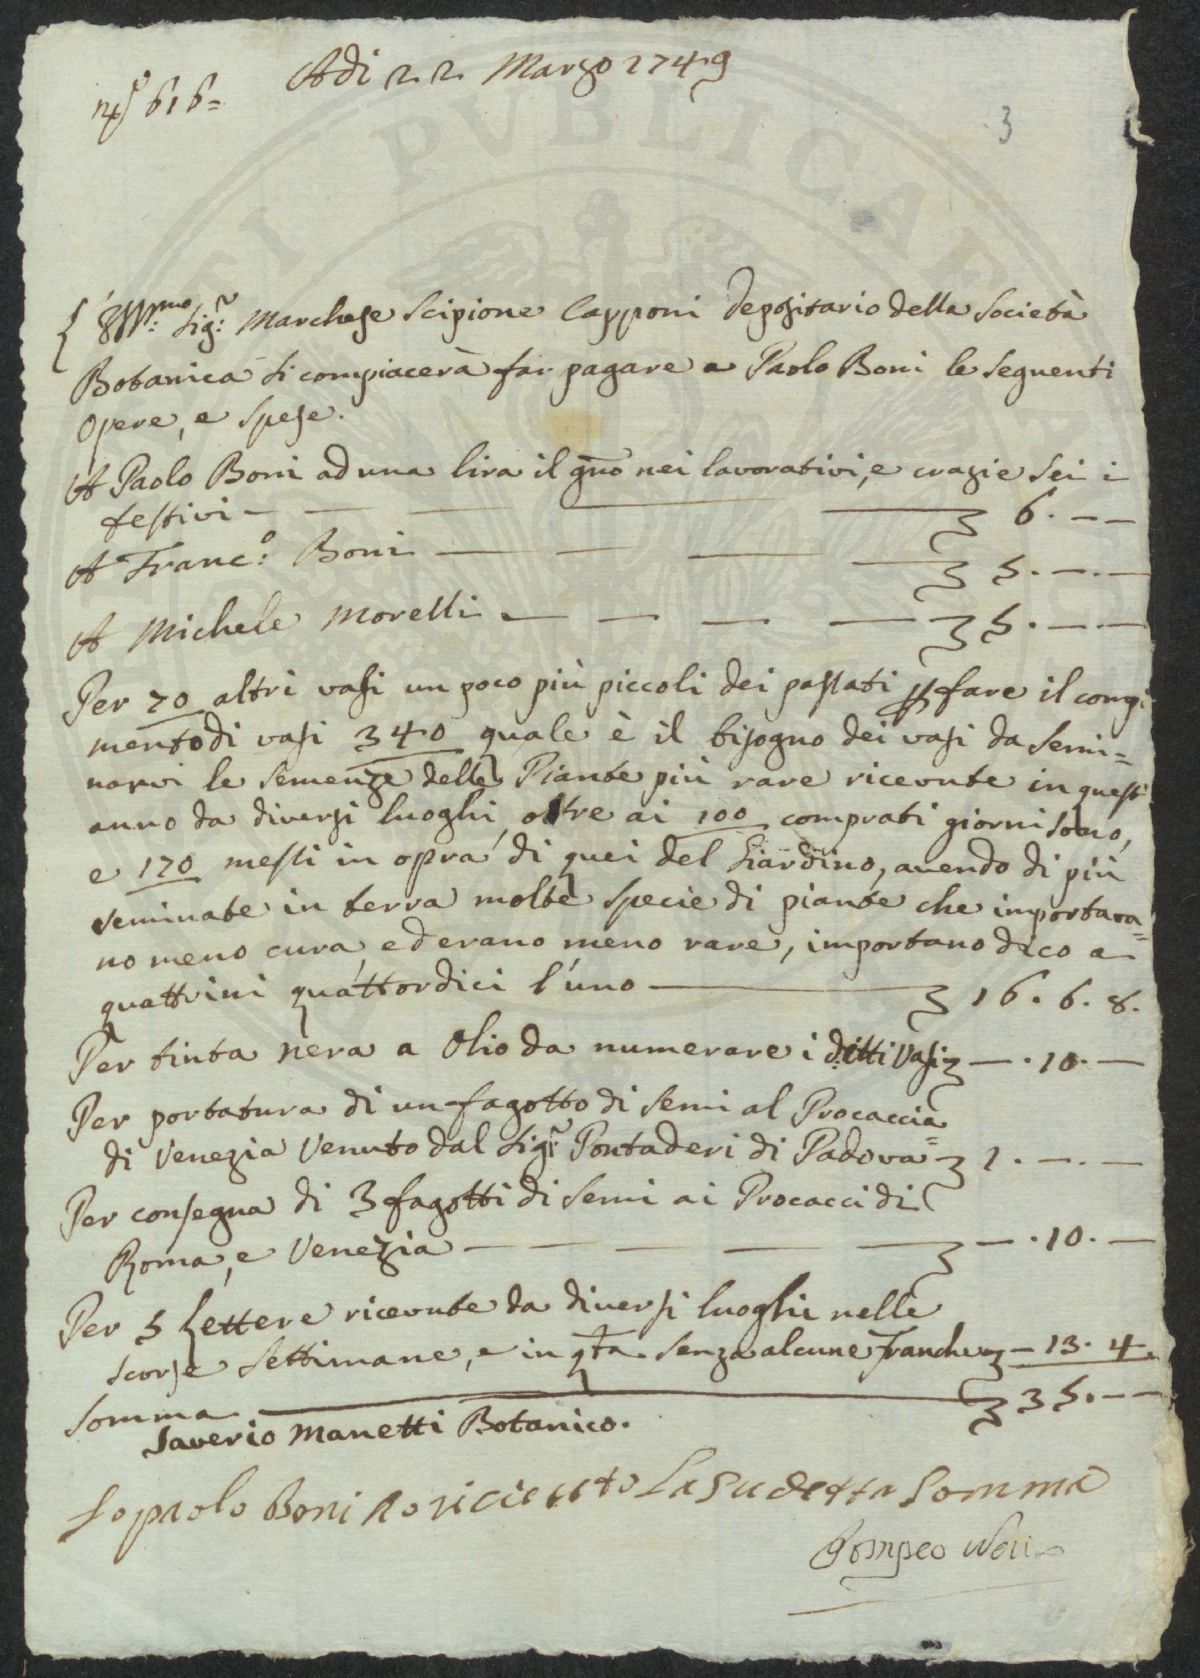 Adi 22 Marzo 1749
616=
3
Illmo: Sigr: Marchese Scipione Capponi Depositario della Società
Botanica si compiacerà far pagare a Paolo Boni le seguenti
Opere, e spese.
A Paolo Boni ad una lira il gno nei lavorativi, e crazie sei i
festivi 6. — —
A Franc:o Boni 5. — —
A Michele Morelli 5. — —
Per 70 altri vasi un poco più piccoli dei passati p fare il compi
mento di vasi 340 quale è il bisogno dei vasi da semi=
narvi le semenze delle Piante più rare ricevute in quest
anno da diversi luoghi, oltre ai 100 comprati giorni sono,
e 170 messi in opra di quei del Giardino, avendo di più
seminate in terra molte specie di piante che importava=
no meno cura, ed erano meno rare, importano dico a
quattrini quattordici l'uno 16. 6. 8.
Per tinta nera a Olio da numerare i detti Vasi — . 10. —
Per portatura di un fagotto di semi al Procaccia
di Venezia venuto dal Sigr: Pontaderi di Padova 1. — . —
Per consegna di 3 fagotti di semi ai Procacci di
Roma, e Venezia — . 10. —
Per 5 Lettere ricevute da diversi luoghi nelle
scorse settimane, e in qta senza alcune franche — 13. 4.
Somma 35. — —
Saverio Manetti Botanico.
Io paolo Boni ho riceuto La sudetta Somma
Pompeo Neri
PVBLICAE